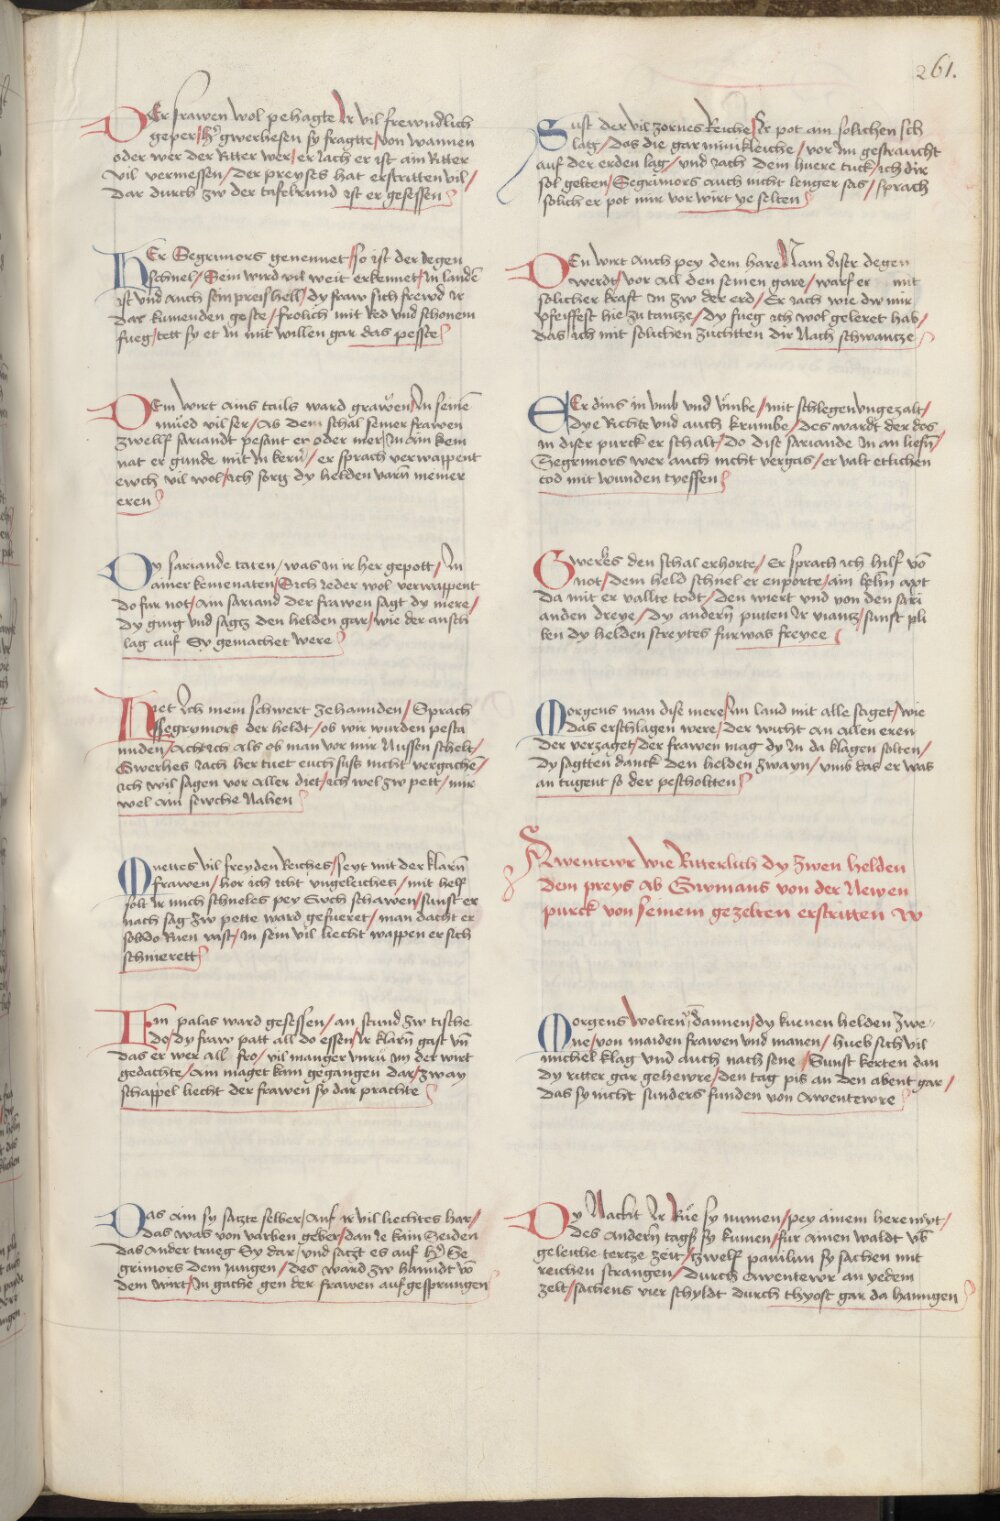 261.
DEr frawen wol pehagte / Ir vil frewndlich
geper / hr̄ gwerhesen sy fragtte / von wannen
oder wer der Ritter wer / er iach er ist ain Ritter
vil vermessen / der preyses hat erstritten vil /
Dar durch zw der tafelrund ist er gesessen
HEr Segrimors genennet / so ist der degen
schnel / Sein wird vil weit erkennet / in landē
ist vnd auch sein preis hell / dy fraw sich frewd ir
dar kumenden geste / frolich mit Red vnd schonem
fueg / tett sy et in mit willen gar das pesste
DEm wirt ains tails ward grawen / In seinē
mued vil ser / Ab dem schal seiner frawen
zwelff sariandt pesant er oder mer / In ain kem
nat er gunde mit in kern̄ / er sprach verwappent
ewch vil wol / ich sorg dy helden varn̄ meiner
eren
Dy sariande taten / was in ir her gepott / In
ainer kemenaten / Sich ieder wol verwappent
do fur not / Ain sariand der frawen sagt dy mere /
Dy ging vnd sagtz den helden gar / wie der ansch
lag auf Sy gemachet were
Hiet Ich mein schwert zehannden / Sprach
Segrymors der heldt / ob wir wurden pesta
nnden / Ach ich als ob man vor mir Nussen schelt /
Gwerhes iach her tuet euch suss nicht vergachē /
ich wil sagen vor aller diet / ich wel zw pett / mir
wel ain sewche Nahen
Quettes vil freyden Reiches / seyt mit der klarn̄
frawen / hor ich icht vngeleiches / mit helf
solt ir mich schnoles pey Euch schawen / sunst er
nach sag zw pette ward gefueret / man dacht er
solldo Rien vast / in sein vil liecht wappen er sich
schnierett
Im palas ward gesessen / an stund zw tische
do / dy fraw patt all do essen / ir klarn̄ gast vn̄
das er wer all fro / vil manger vnru im der wirt
gedachte / Ain maget kam gegangen dar / zway
schappel liecht der frawen sy dar prachte
Das ain sy satzte selber / Auf ir vil liechtes har /
das was von varben gelber / dan ie kain Seiden
das ander trueg Sy dar / und satzt es auf hr̄ Se
grimors dem Jungen / des ward zw hannidt vō
dem wirt / In gache gen der frawen auf gesprungen
Sust der vil zornes Reiche / Ir pot ain solichen sch
lag / das die gar minikleiche / vor im gestrauchť
auf der erden lag / vnd iach dem huere tuck / ich dir
sol gelten / Segrimors auch nicht lenger sas / sprach
solich er pot mir vor wirt ye selten
DEn wirt auch pey dem hare / Nam diser degen
werdt / vor all den seinen gare / warf er mit
solicher kraft in zw der erd / Er iach wie dw mir
pfeiffest hie zu tantze / dy fueg ich wol geleret hab /
das ich mit solichen zuchtten dir Nach schwantze
Er dins in vmb vnd vmbe / mit schlegen vngezalt /
dye Richte vnd auch krumbe / des wardt der dos
in diser purck er schalt / do dise sariande in an liefn̄ /
Segrimors wer auch nicht vergas / er valt etlichen
tod mit wunden tyeffen
Gwerhes den schal erhorte / Er sprach ich hilf vō
not / dem held schnel er enporte / ain helm axt
da mit er vallte todt / den wiert vnd von den sari
anden dreye / dy andern̄ puten ir vianz / sunst pli
ben dy helden streytes fur was freyee
Morgens man dise mere / im land mit alle saget / wie
das erschlagen were / der wicht an allen eren
der verzaget / der frawen mag dy in da klagen solten /
dy sagtten danck den helden zwayn / vmb das er was
an tugent so der pescholtten
Awentewr wie Ritterlich dy zwen helden
dem preys ab Girmans von der Newen
purck von seinem gezelten erstritten
Morgens wolten dannen / dy kuenen helden zwe-
ne / von maiden frawen vnd manen / hueb sich vil
michel klag vnd auch nach sene / Sunst kerten dan
dy ritter gar gehewre / den tag pis an den abent gar /
das sy nicht sunders funden von Awentewre
Dy Nacht Ir Rue sy numen / pey ainem heremyt /
des andern tags sy kumen / fur ainen waldt vō
geleiche tertze zeit / zwelf pauilun sy sachen mit
reichen strangen / durch Awentewr an yedem
zelt / sachens vier schyldt durch thyost gar da hanngen